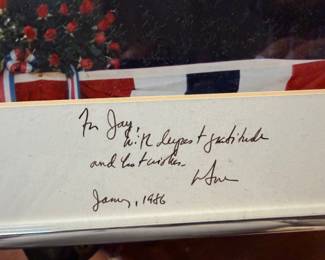 For Jay,
with deepest gratitude
and best wishes.
January, 1986